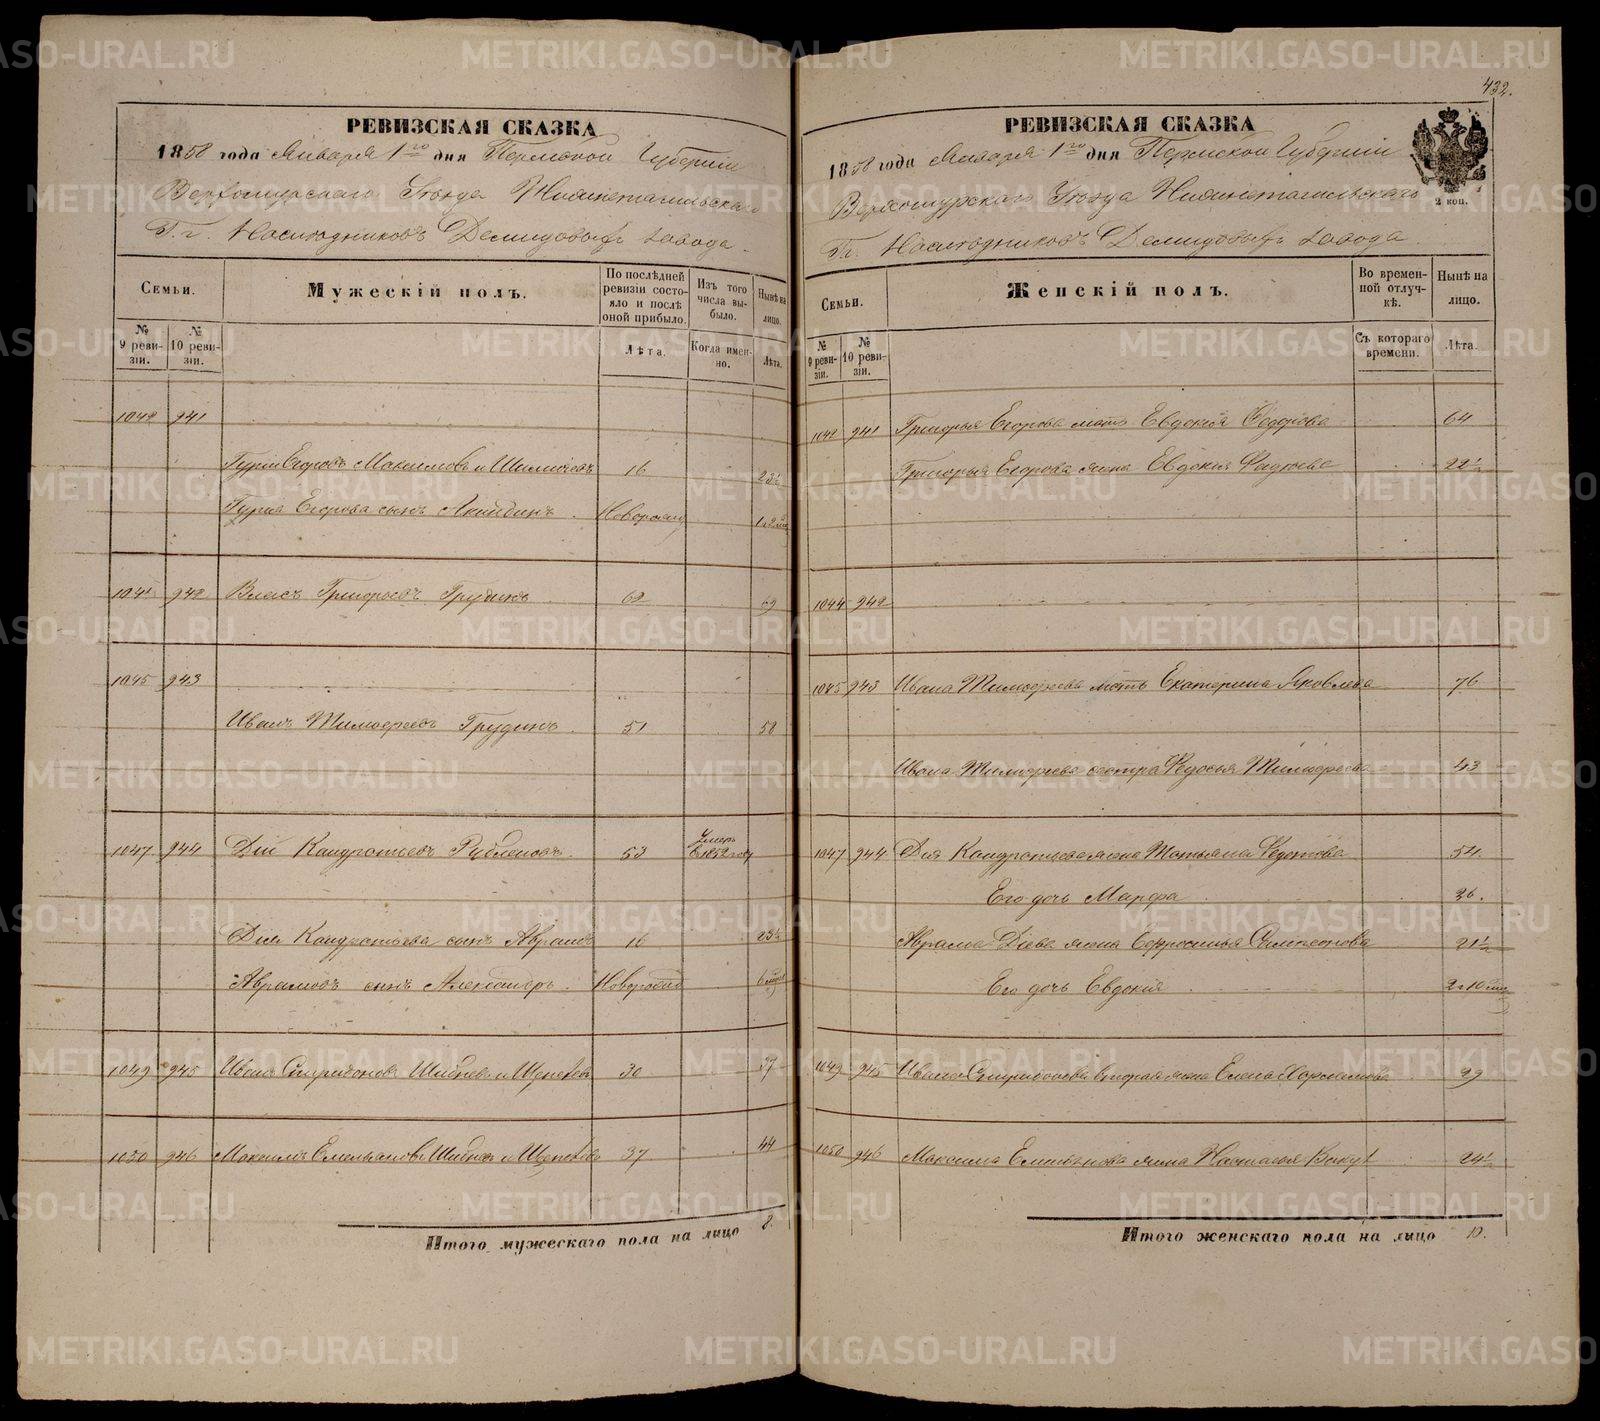 432.
РЕВИЗСКАЯ СКАЗКА
1858 года Января 1го дня Пермской Губернии
Верхотурскаго Уѣзда Нижнетагильскаго
Г.г. Наслѣдниковъ Демидовыхъ завода.
Семьи.
Мужескій полъ.
По послѣдней ревизіи состояло и послѣ оной прибыло.
Изъ того числа выбыло.
Нынѣ на лицо.
№ 9 ревизіи.
№ 10 ревизіи.
Лѣта.
Когда именно.
Лѣта.
1042 941
Егоровъ Максимовъ и 16 23½
Гурия Егорова сынъ Новорожд
942 Власъ Григорьевъ Грудинъ 62 69
1045 943
Иванъ Тимофеевъ Грудинъ 51 58
1047 944 Дій Кондратьевъ 53 Умеръ въ 1852 году
Дия Кондратьева сынъ Аврамъ 16 23½
Аврамовъ сынъ Александръ Новорожд
1049 945 Иванъ Спиридоновъ 30 37
1050 946 Максимъ Емельяновъ 37 44
Итого мужескаго пола на лицо 8.
РЕВИЗСКАЯ СКАЗКА
1858 года Января 1го дня Пермской Губерніи
Верхотурскаго Уѣзда Нижнетагильскаго
Гг. Наслѣдниковъ Демидовыхъ завода
2 коп.
Семьи.
Женскій полъ.
Во временной отлучкѣ.
Нынѣ на лицо.
№ 9 ревизіи.
№ 10 ревизіи.
Съ котораго времени.
Лѣта.
1042 941 Григорья Егорова мать Евдокія Федорова 64
Григорья Егорова жена Евдокия 22½
1044 942
1045 943 Ивана Тимофеева мать Екатерина Яковлева 76
Ивана Тимофеева сестра Федосья Тимофеева 43
1047 944 Дия Кондратьева жена Татьяна Федотова 54.
Его дочь Марфа 26.
Аврама Діева жена 21½
Его дочь Евдокія 2 г 10 мѣс
1049 945 Ивана Спиридонова вторая жена Елена Харламова 29
1050 946 Максима Емельянова жена Настасья 24½
Итого женскаго пола на лицо 10.
METRIKI.GASO-URAL.RU